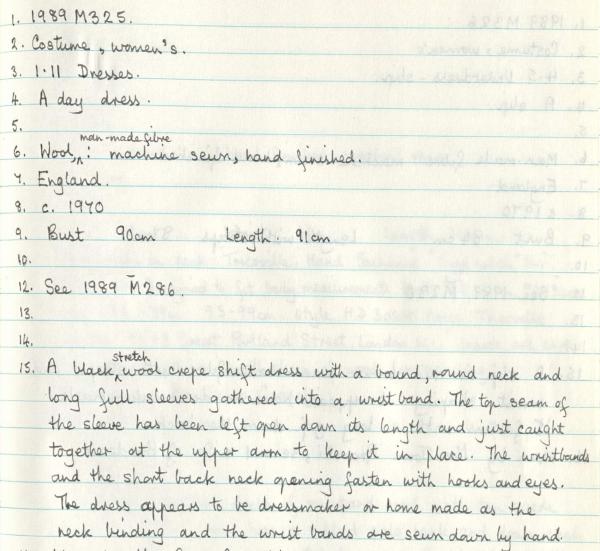 1. 1989 M325.
2. Costume, women's.
3. 1·11 Dresses.
4. A day dress.
5.
6. Wool, man-made fibre : machine sewn, hand finished.
7. England.
8. c. 1970
9. Bust 90cm Length. 91cm
10.
12. See 1989 M286.
13.
14.
15. A black stretch wool crepe shift dress with a bound, round neck and
long full sleeves gathered into a wristband. The top seam of
the sleeve has been left open down its length and just caught
together at the upper arm to keep it in place. The wristbands
and the short back neck opening fasten with hooks and eyes.
The dress appears to be dressmaker or home made as the
neck binding and the wrist bands are sewn down by hand.